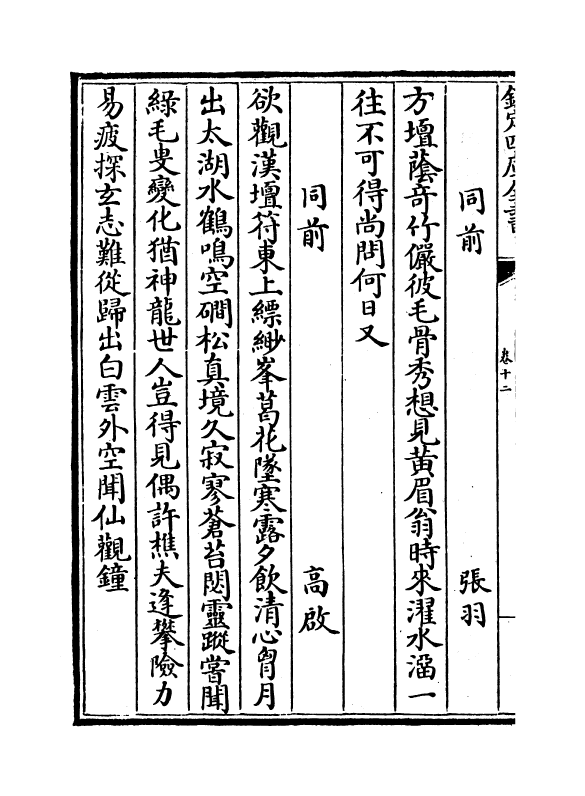 欽定四庫全書
卷十二
同前 張羽
方壇蔭竒竹儼彼毛骨秀想見黃眉翁時來濯水溜一
往不可得尚問何日又
同前 高啟
欲觀漢壇符東上縹緲峯菖花墜寒露夕飲清心胷月
出太湖水鶴鳴空磵松真境久寂寥蒼苔閟靈蹤嘗聞
綠毛叟變化猶神龍世人豈得見偶許樵夫逢攀險力
易疲探玄志難從歸出白雲外空聞仙觀鐘